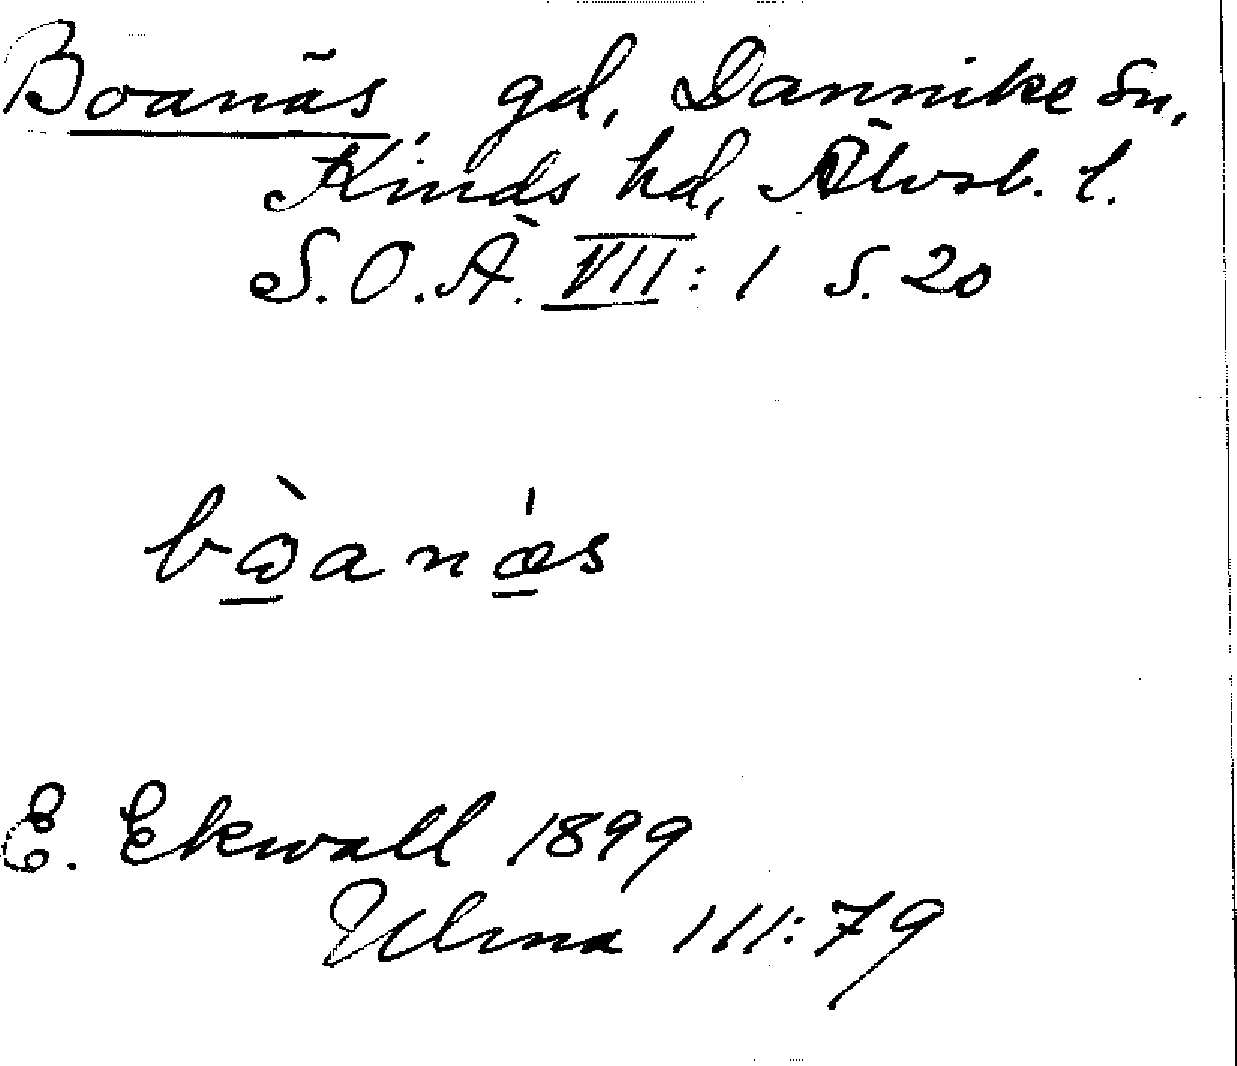 Boanäs gd, Dannike sn,
Kinds hd, Älvsb. l.
S.O.Ä. VII:1 s. 20
bòanæ̍s
E. Ekwall 1899
Ulma 111:79